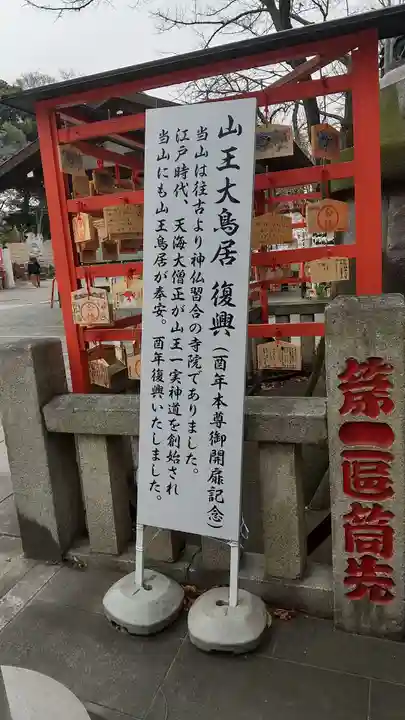 山王大鳥居 復興（酉年本尊御開扉記念）
当山は往古より神仏習合の寺院でありました。
江戸時代、天海大僧正が山王一実神道を創始され
当山にも山王鳥居が奉安。酉年復興いたしました。
第一区筒先